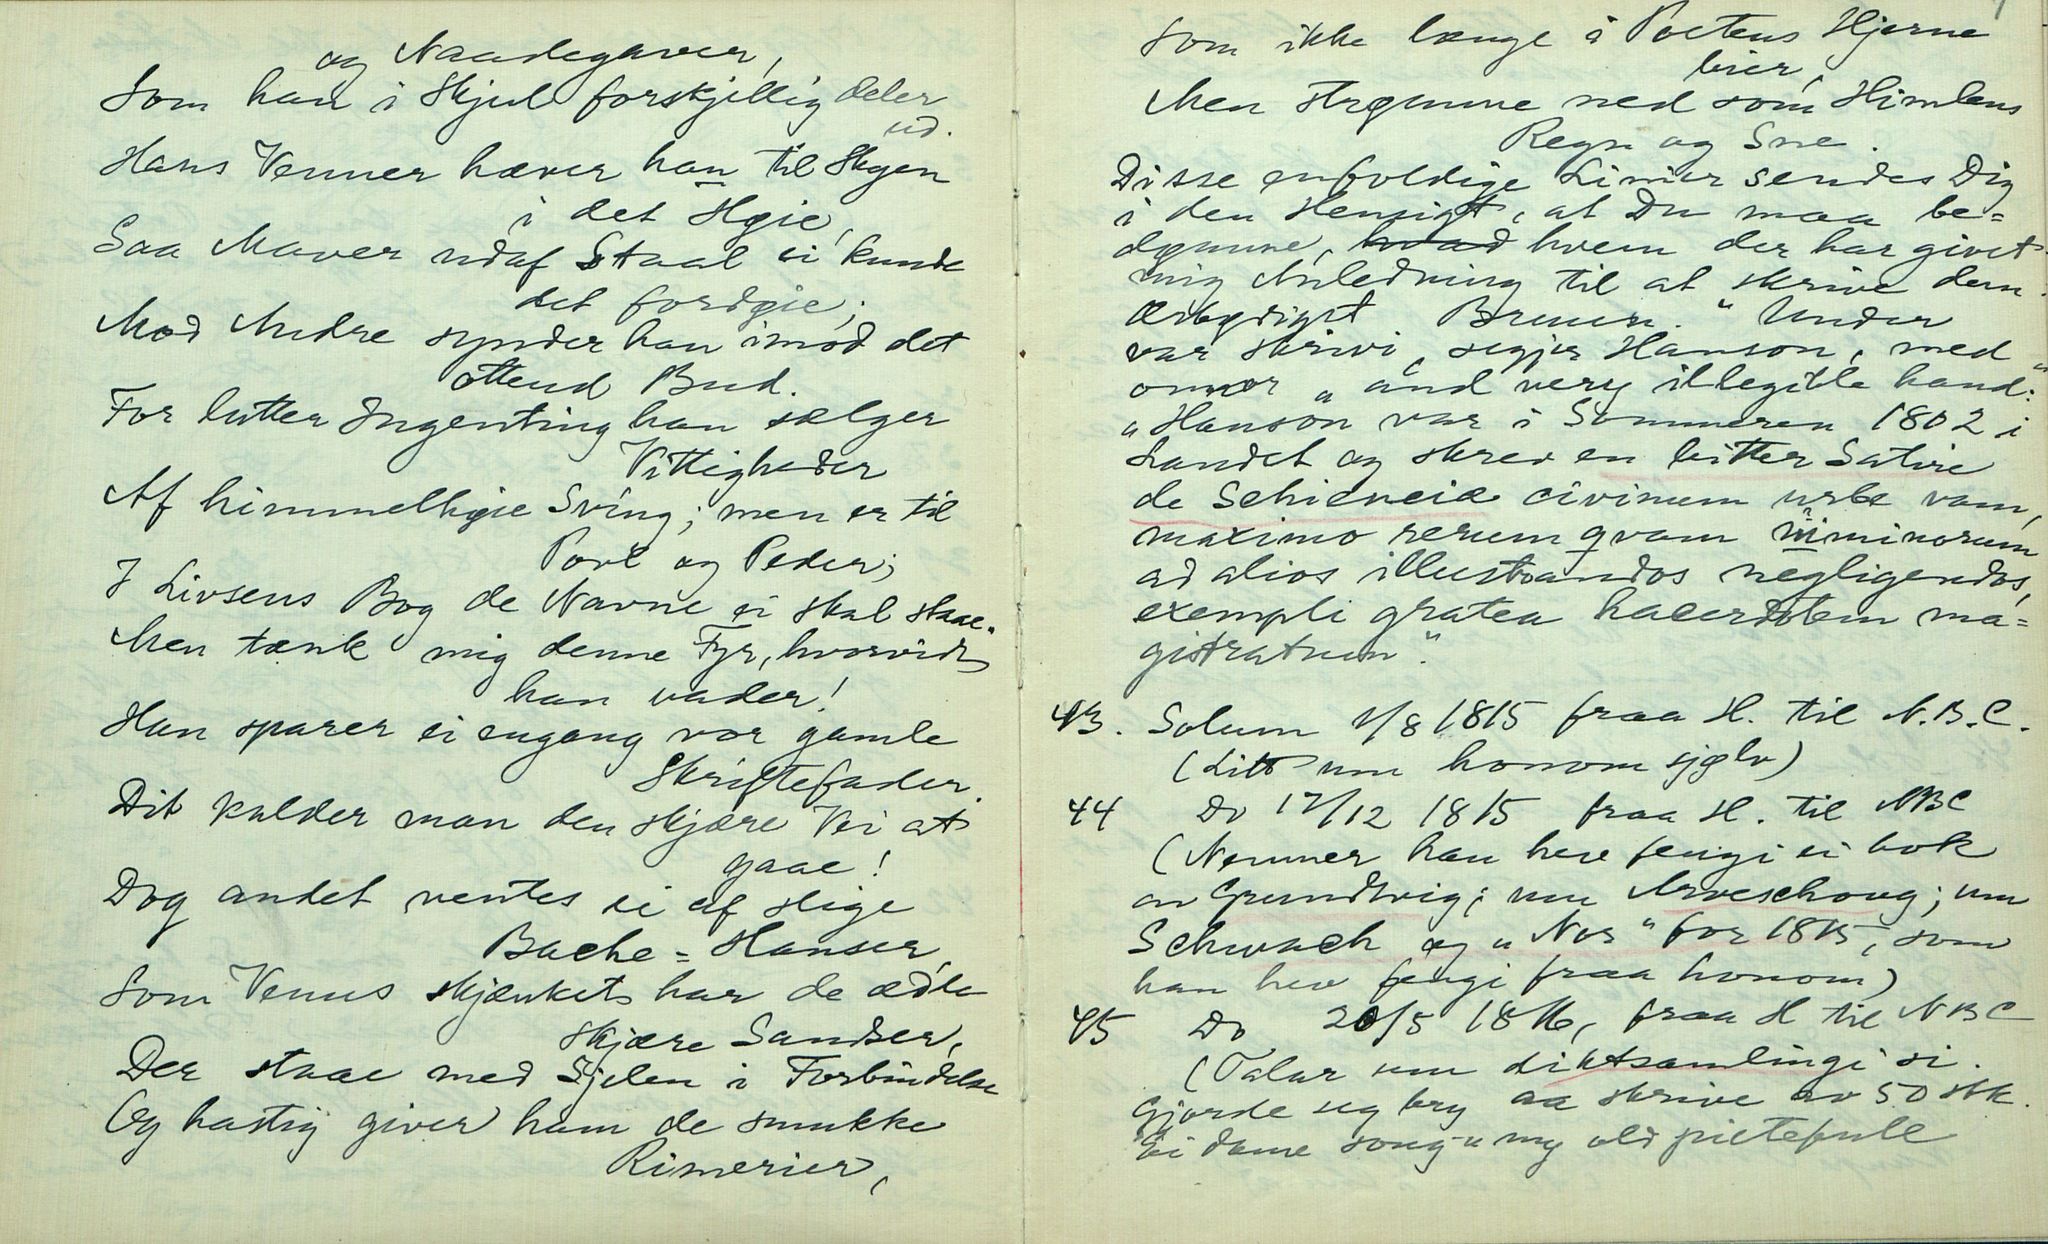 og Naadegaver,
Som han i Skjul forskjellig deler
ud.
Hans Venner hæver han til Skyen
i det Høie,
Saa Maver udaf Staal ei kunde
det fordøie;
Mod Andre synder han imod det
ottend Bud.
For lutter Ingenting han sælger
Vittigheder
Af himmelhøie Sving; men er til
Povl og Peder;
I Livsens Bog de Navne ei skal staae.
Men tænk mig denne Fyr, hvorvidt
han vader!
Han sparer ei engang vor gamle
Skriftefader.
Dit kalder man den skjære Vei at
gaae!
Dog andet ventes ei af slige
Bache-Hanser,
Som Venus skjænket har de ædle
skjære Sandser,
Der staae med Sjelen i Forbindelse
Og hastig giver ham de smukke
Rimerier,
Som ikke længe i Poetens Hjerne
bier,
Men strømme ned som Himlens
Regn og Sne.
Disse enfoldige Linier sendes Dig
i den Hensigt, at Du maa be=
dømme, hvad hvem der har givet
mig Anledning til at skrive dem.
Ærbødigst Bruun." Under
var skrivi, segjer Hanson, med
onnor "and very illegible hand:"
"Hanson var i Sommeren 1802 i
Landet og skrev en bitter Satire
de Schieneiæ civinum urbe vam,
maximo rerum qvam minimorum
ad alios illustrandos negligendos,
exempli gratea hacerdotem ma=
gistratum".
43. Solum 1/8 1815 fraa H. til N.B.C.
(Litt um honom sjølv)
44 Do 17/12 1815 fraa H. til NBC
(Nemner han hev fengi ei bok
av Grundtvig; um Arveschoug; um
Schwach og "Nor" for 1815, som
han hev fengi fraa honom)
45 Do 20/5 1816, fraa H til NBC
(Talar um diktsamlingi si.
Gjorde seg bry aa skrive av 50 stk.
"Ei dame song" my old pietefull